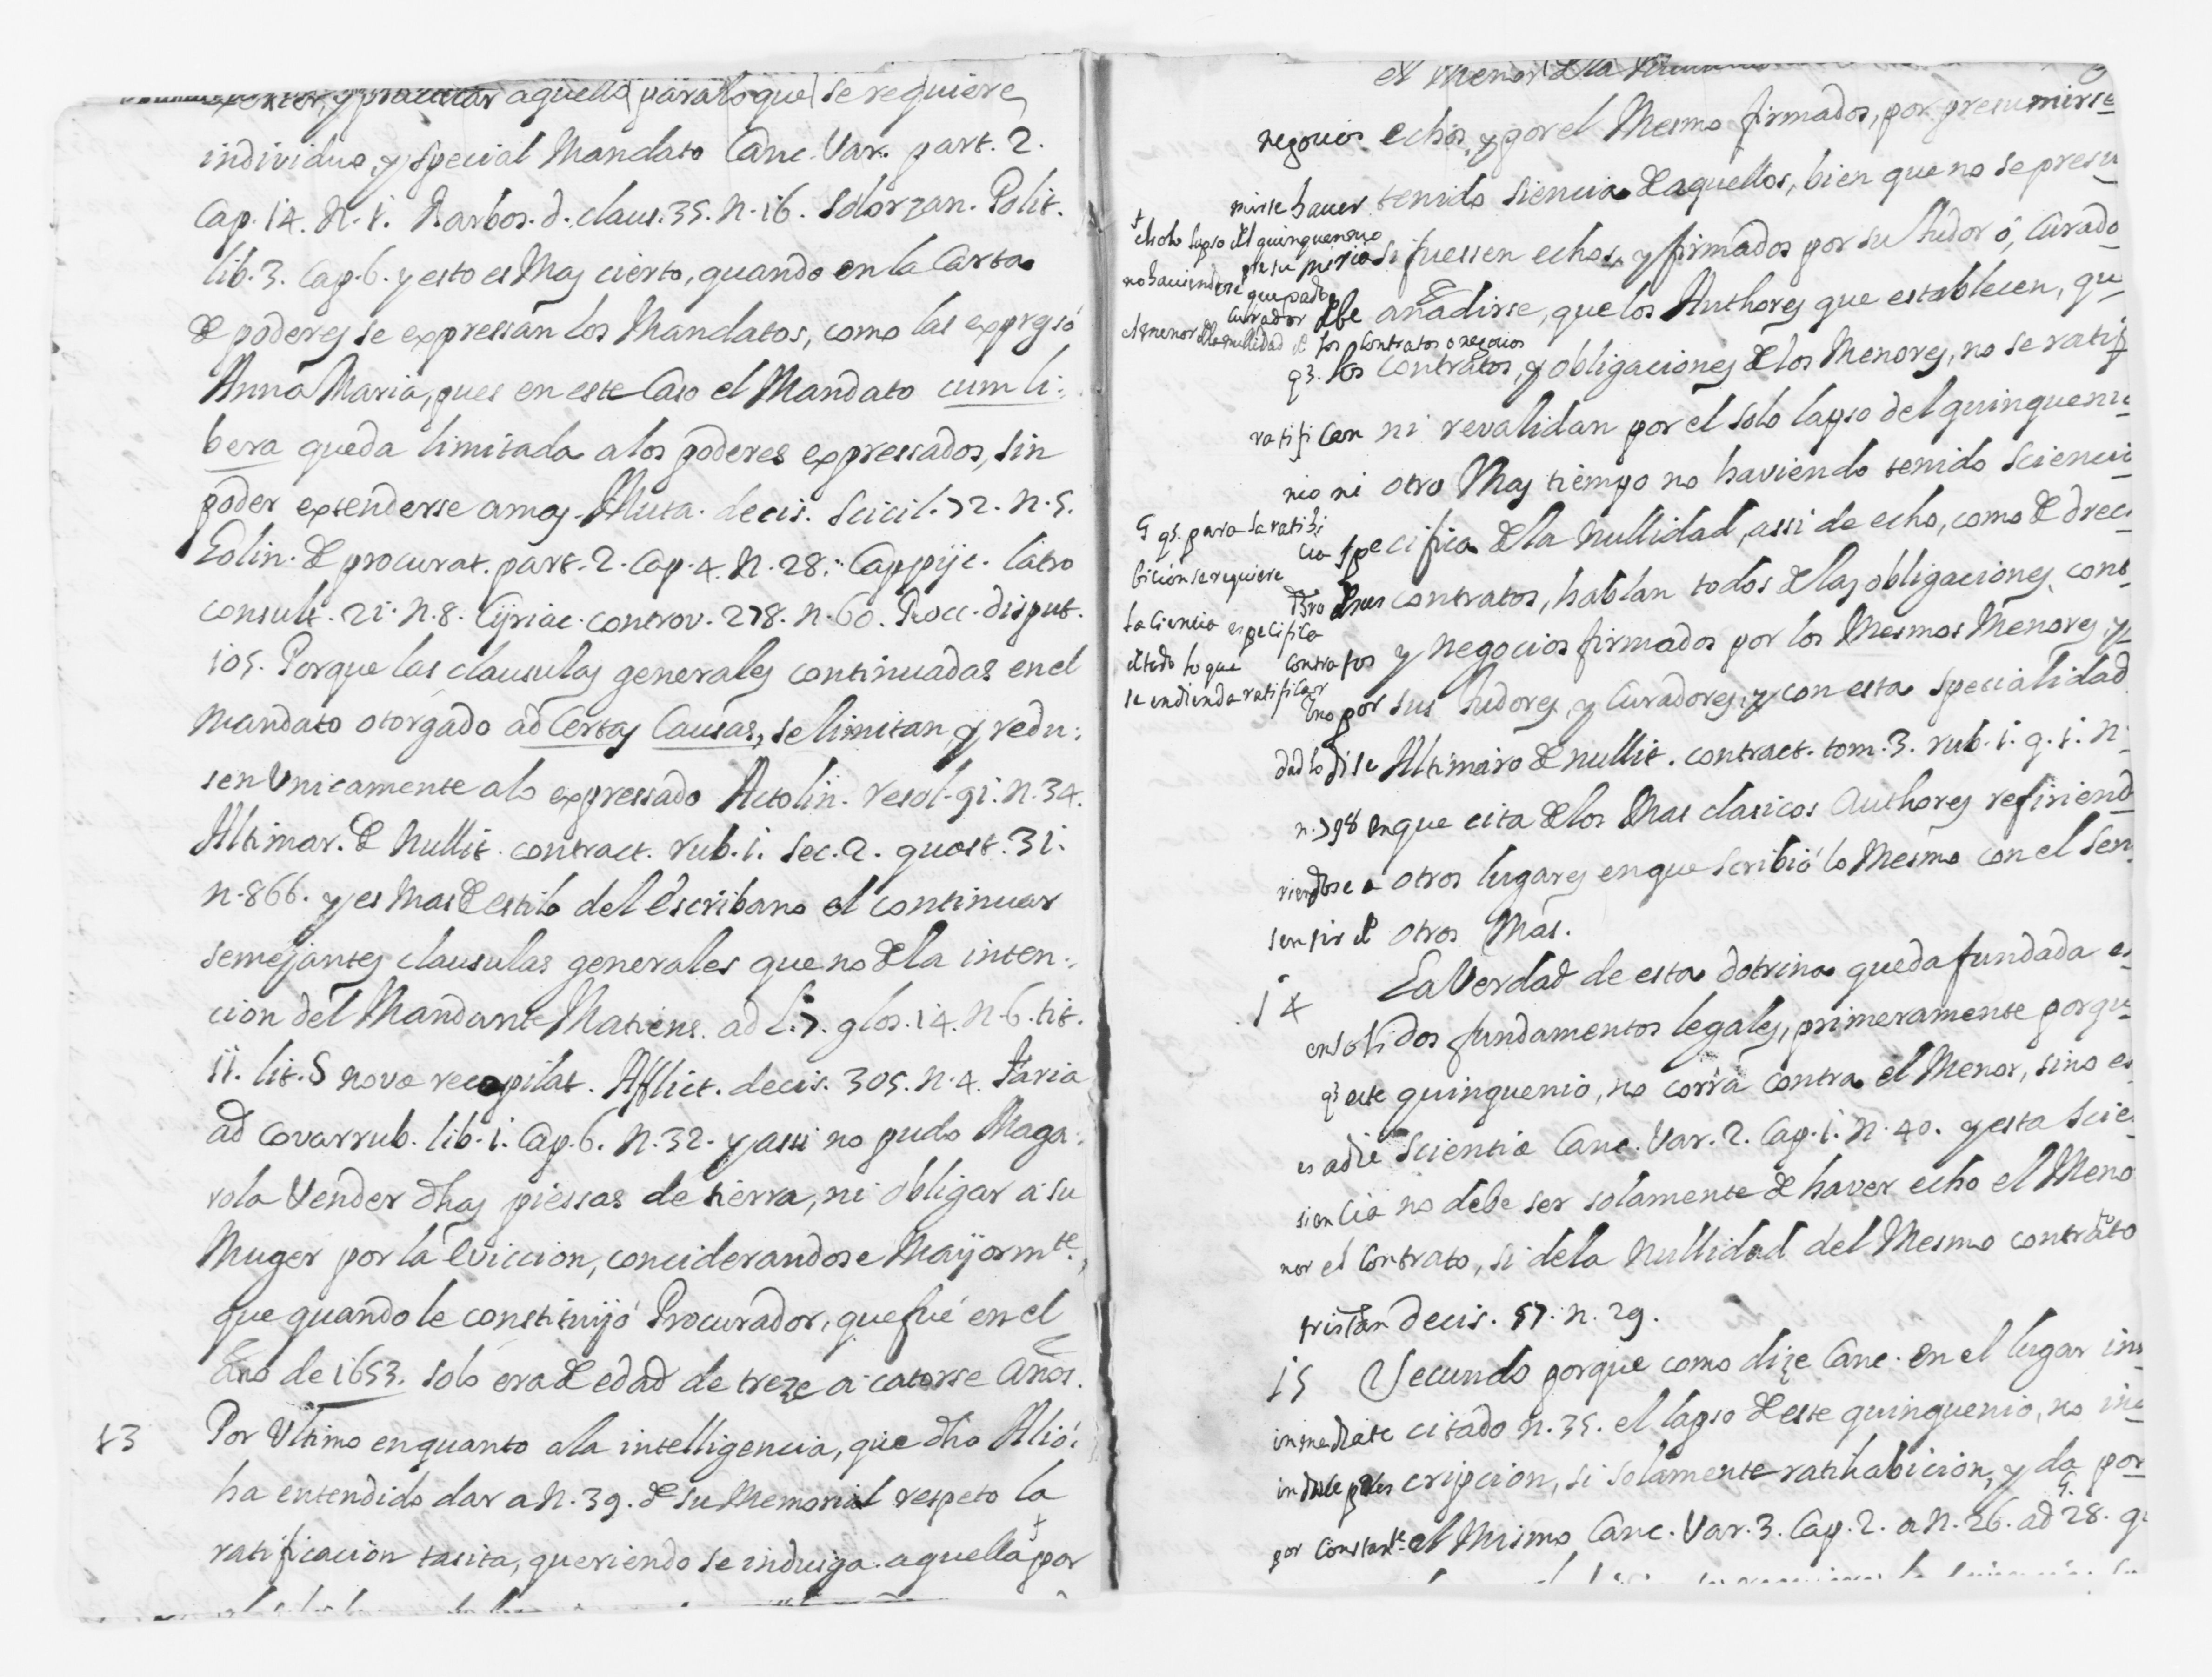 aquello para lo que se requiere
individuo, y special Mandato Canc. Var. part. 2.
Cap. 14. N. 1. Barbos. d. claus. 35. N. 16. Solorzan. Polit.
lib. 3. Cap. 6. y esto es Mas cierto, quando en la Carta
de poderes se expressan los Mandatos, como las expressó
Anna Maria, pues en este Caso el Mandato cum li:
bera queda limitada a los poderes expressados, sin
poder extenderse a mas. Muta. decis. Scicil. 72. N. 5.
Eolin. de procurat. part. 2. Cap. 4. N. 28. Cappÿc. latro
consult. 21. N. 8. Cÿriac. controv. 278. N. 60. Rocc. disput.
105. Porque las clausulas generales continuadas en el
Mandato otorgado ad Certas Causas, se limitan, y redu:
sen Unicamente a lo expressado Actolin. resol. 91. N. 34.
Altimar. de Nullit. contract. rub. 1. Sec. 2. quæst. 31.
N. 866. y es Mas de estilo del escribano el continuar
semejantes clausulas generales que no de la inten:
cion del Mandante Matiens. ad l. 7. glos. 14. N. 6. tit.
11. lit. S novæ recopilat. Afflict. decis. 305. N. 4. Faria
ad Covarrub. lib. 1. Cap. 6. N. 32. y assi no pudo Maga:
rola Vender dhas piessas de tierra, ni obligar a su
Muger por la eviccion, conciderandose Maÿormte.,
que quando le constituÿó Procurador, que fué en el
Año de 1653. solo era de edad de treze a catorse Años.
13 Por Ultimo en quanto a la intelligencia, que dho Alió:
ha entendido dar a N. 39. de su Memorial respeto la
ratificacion tasita, queriendo se induiga aquella † por
el Menor de la
negocios echos, y por el Mesmo firmados, por presumirse
mirse haver tenido siencia de aquellos, bien que no se presu
† el solo lapso del quinquenio
si fuessen echos, y firmados por su Tudor ó, Curado
no haviendose
Curador debe añadirse, que los Authores que establecen, qu
el menor de la nullidad de los contratos o negocios
q3. los contratos, y obligaciones de los Menores, no se ratif
ratifican ni revalidan por el solo lapso del quinqueni
nio ni otro Mas tiempo no haviendo tenido sciencia
ꟼ q3. para la ratihi
cia specifica de la Nullidad, assi de echo, como de drec
bicion se requiere
contratos, hablan todos de las obligaciones, cont
la ciencia especifica
contratos y negocios firmados por los Mesmos Menores, y
de todo lo que
se endienda ratificar
no por sus Tudores, y Curadores, y con esta specialidad
dad lo dise Altimaro de nullit. contract. tom. 3. rub. 1. q. 1. N.
n. 798 en que cita de los Mas clasicos Authores refiriend
riendose a otros lugares en que scribió lo Mesmo con el Sen
sentir de otros Mas.
14 La Verdad de esta dotrina queda fundada e
en solidos fundamentos legales, primeramente porqu
q3 este quinquenio, no corra contra el Menor, sino es
es a die scientiæ Canc. Var. 2. Cap. 1. N. 40. y esta scie
siencia no debe ser solamente de haver echo el Meno
nor el Contrato, si de la Nullidad del Mesmo contrato
tristan decis. 57. N. 29.
15 Secundo porque como dize Canc. en el lugar im
inmediate citado N. 35. el lapso de este quinquenio, no ind
cripcion, si solamente ratihabicion, y da por
por constante el Mismo Canc. Var. 3. Cap. 2. a N. 26. ad 28. q